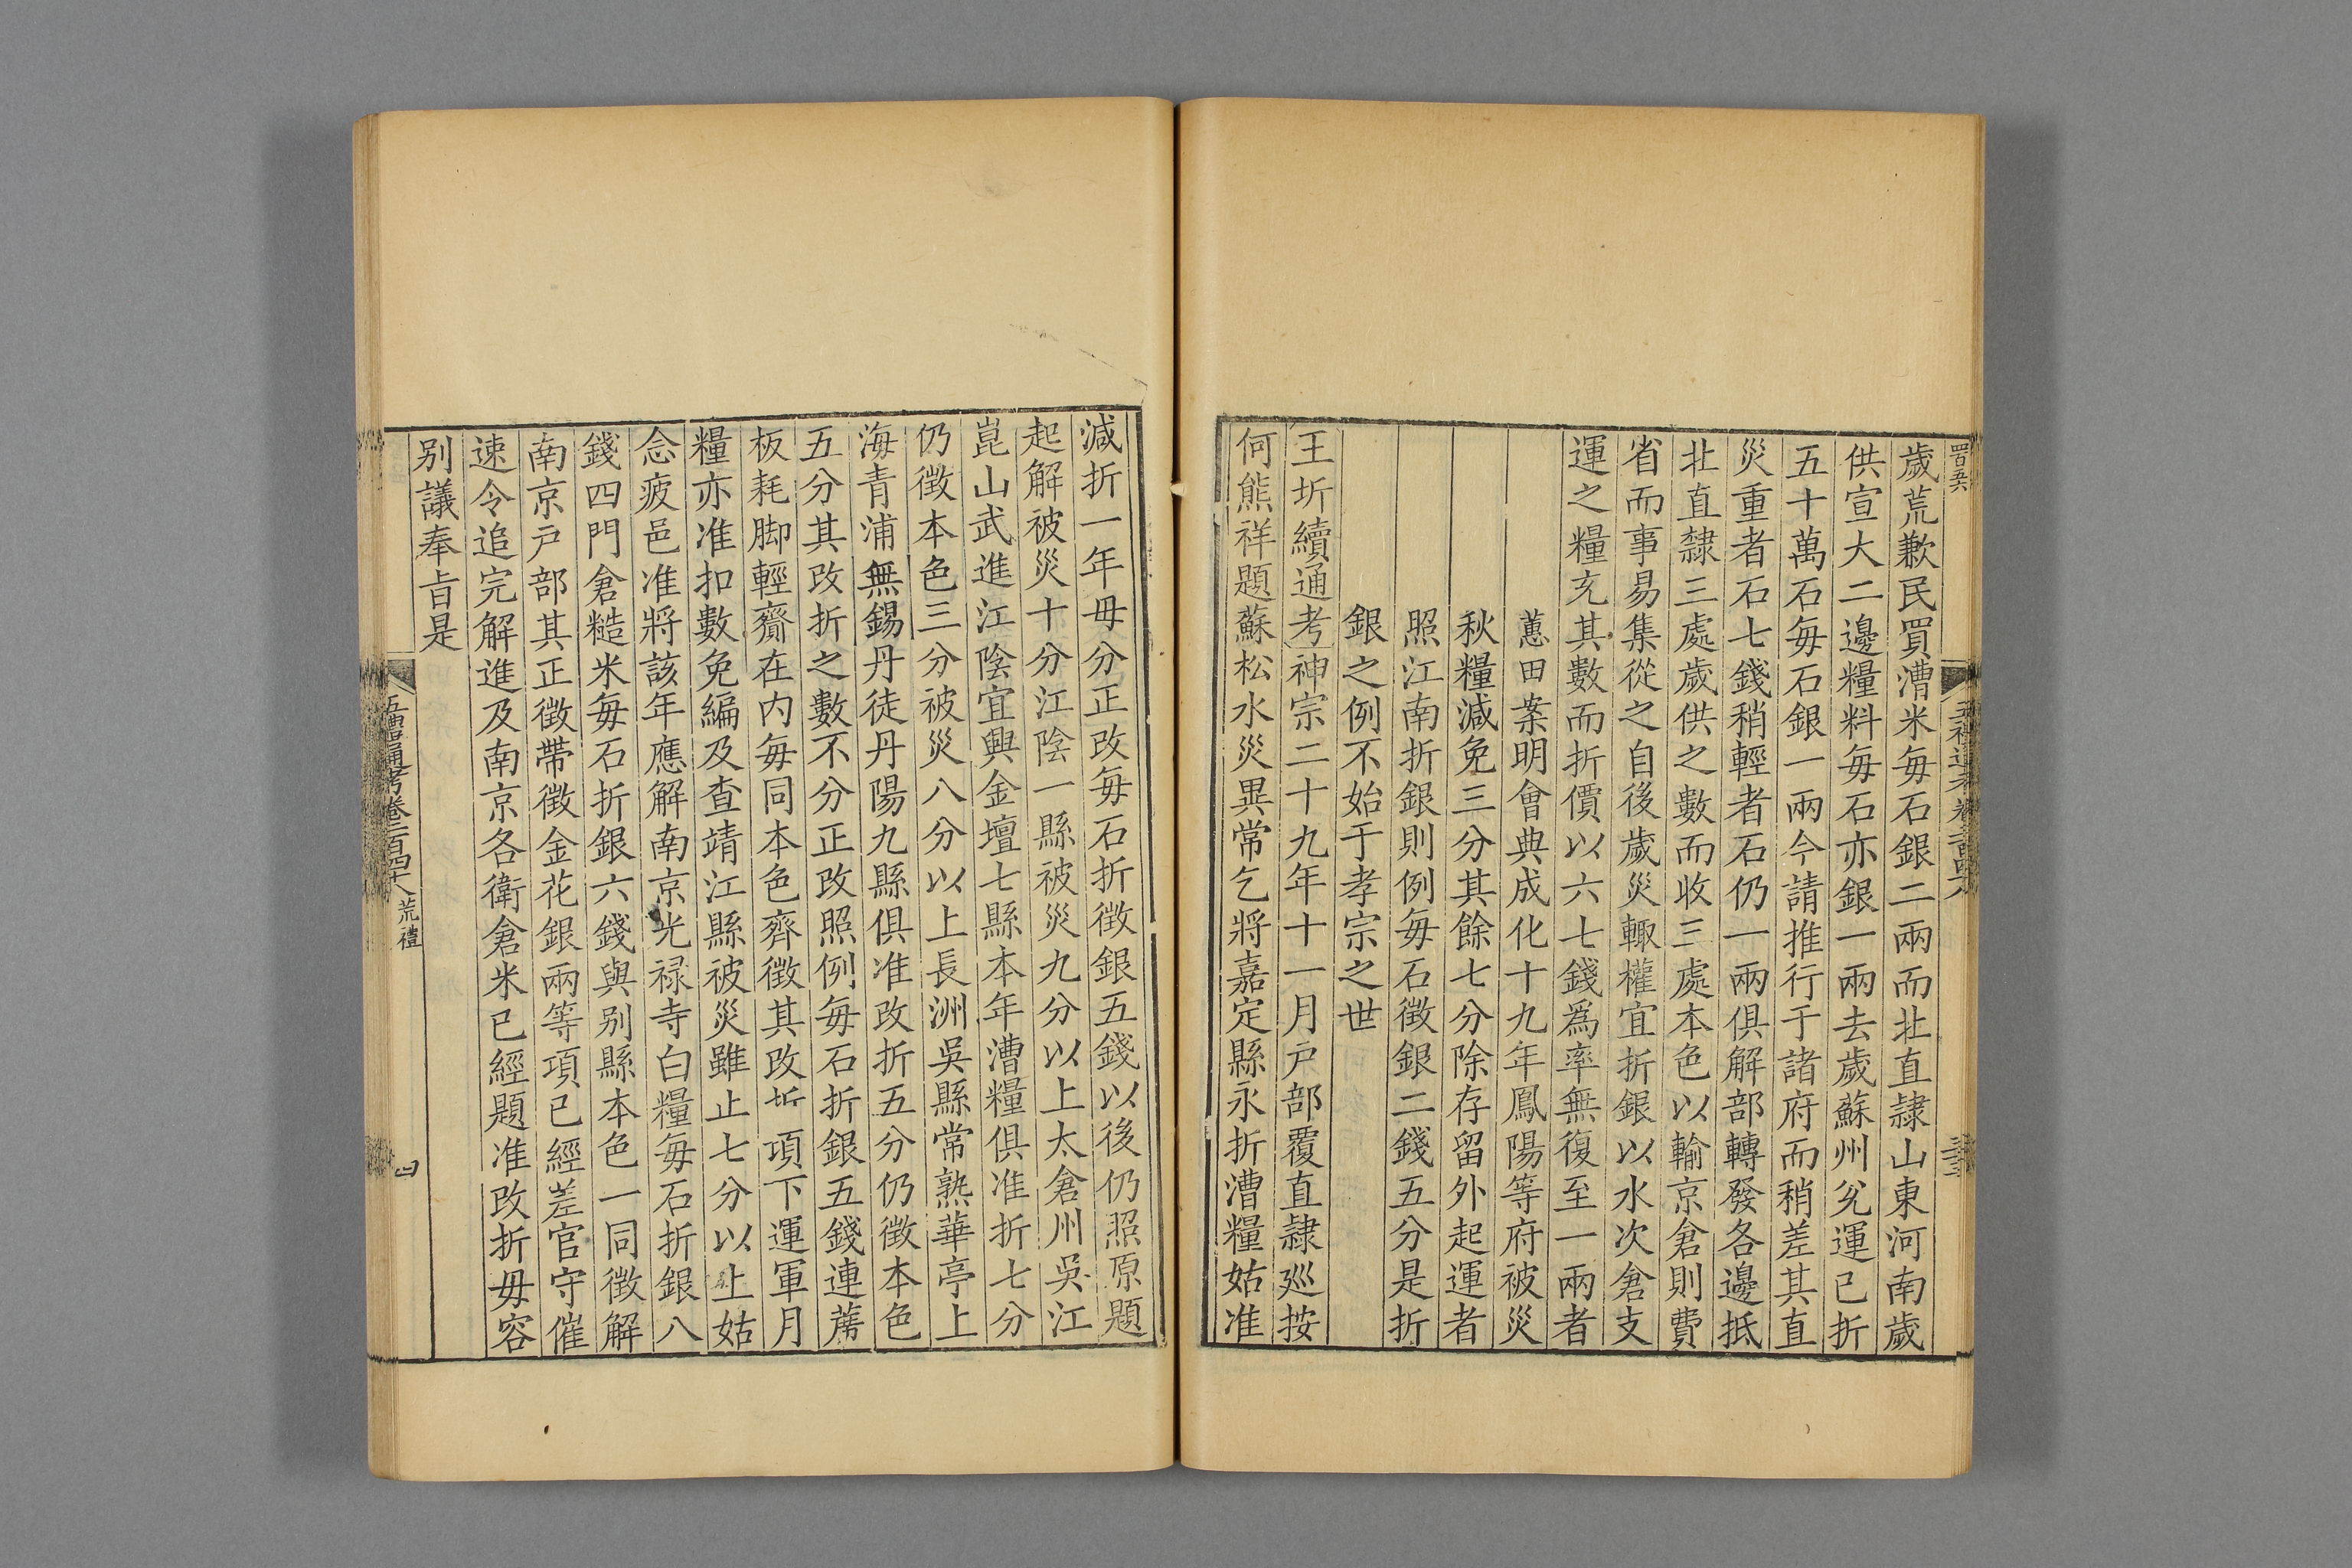 歲荒歉民買漕米每石銀二兩而北直隷山東河南歲
供宣大二邊糧料每石亦銀一兩去歲蘇州兊運已折
五十萬石每石銀一兩今請推行于諸府而稍差其直
災重者石七錢稍輕者石仍一兩俱解部轉發各邊抵
北直隷三處歲供之數而收三處本色以輸京倉則費
省而事易集從之自後歲災輙權宜折銀以水次倉支
運之糧充其數而折價以六七錢爲率無復至一兩者
蕙田案明會典成化十九年鳳陽等府被災
秋糧減免三分其餘七分除存留外起運者
照江南折銀則例每石徵銀二錢五分是折
銀之例不始于孝宗之世
王圻續通考神宗二十九年十一月戸部覆直隷廵按
何熊祥題蘇松水災異常乞將嘉定縣永折漕糧姑准
減折一年毋分正改每石折徵銀五錢以後仍照原題
起解被災十分江陰一縣被災九分以上太倉州吳江
崑山武進江陰宜興金壇七縣本年漕糧俱准折七分
仍徵本色三分被災八分以上長洲吳縣常熟華亭上
海青浦無錫丹徒丹陽九縣俱准改折五分仍徵本色
五分其改折之數不分正改照例每石折銀五錢連蓆
板耗脚輕齎在内每同本色齊徵其改折項下運軍月
糧亦准扣數免編及查靖江縣被災雖止七分以上姑
念疲邑准將該年應解南京光禄寺白糧每石折銀八
錢四門倉糙米每石折銀六錢與别縣本色一同徵解
南京戸部其正徵帶徵金花銀兩等項已經差官守催
速令追完解進及南京各衛倉米已經題准改折毋容
别議奉㫖是
五禮通考卷二百四十八 荒禮